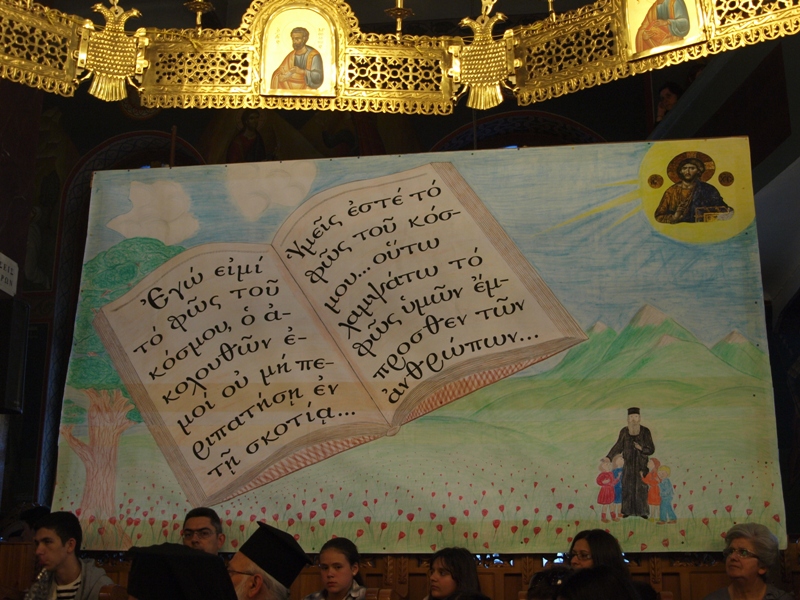 Ἐγώ εἰμί
τό φῶς τοῦ
κόσμου, ὁ ἀ-
κολουθῶν ἐ-
μοί οὐ μή πε-
ριπατήσῃ ἐν
τῇ σκοτίᾳ...
Ὑμεῖς ἐστέ τό
φῶς τοῦ κόσ-
μου... οὕτω
λαμψάτω τό
φῶς ὑμῶν ἔμ-
προσθεν τῶν
ἀνθρώπων...